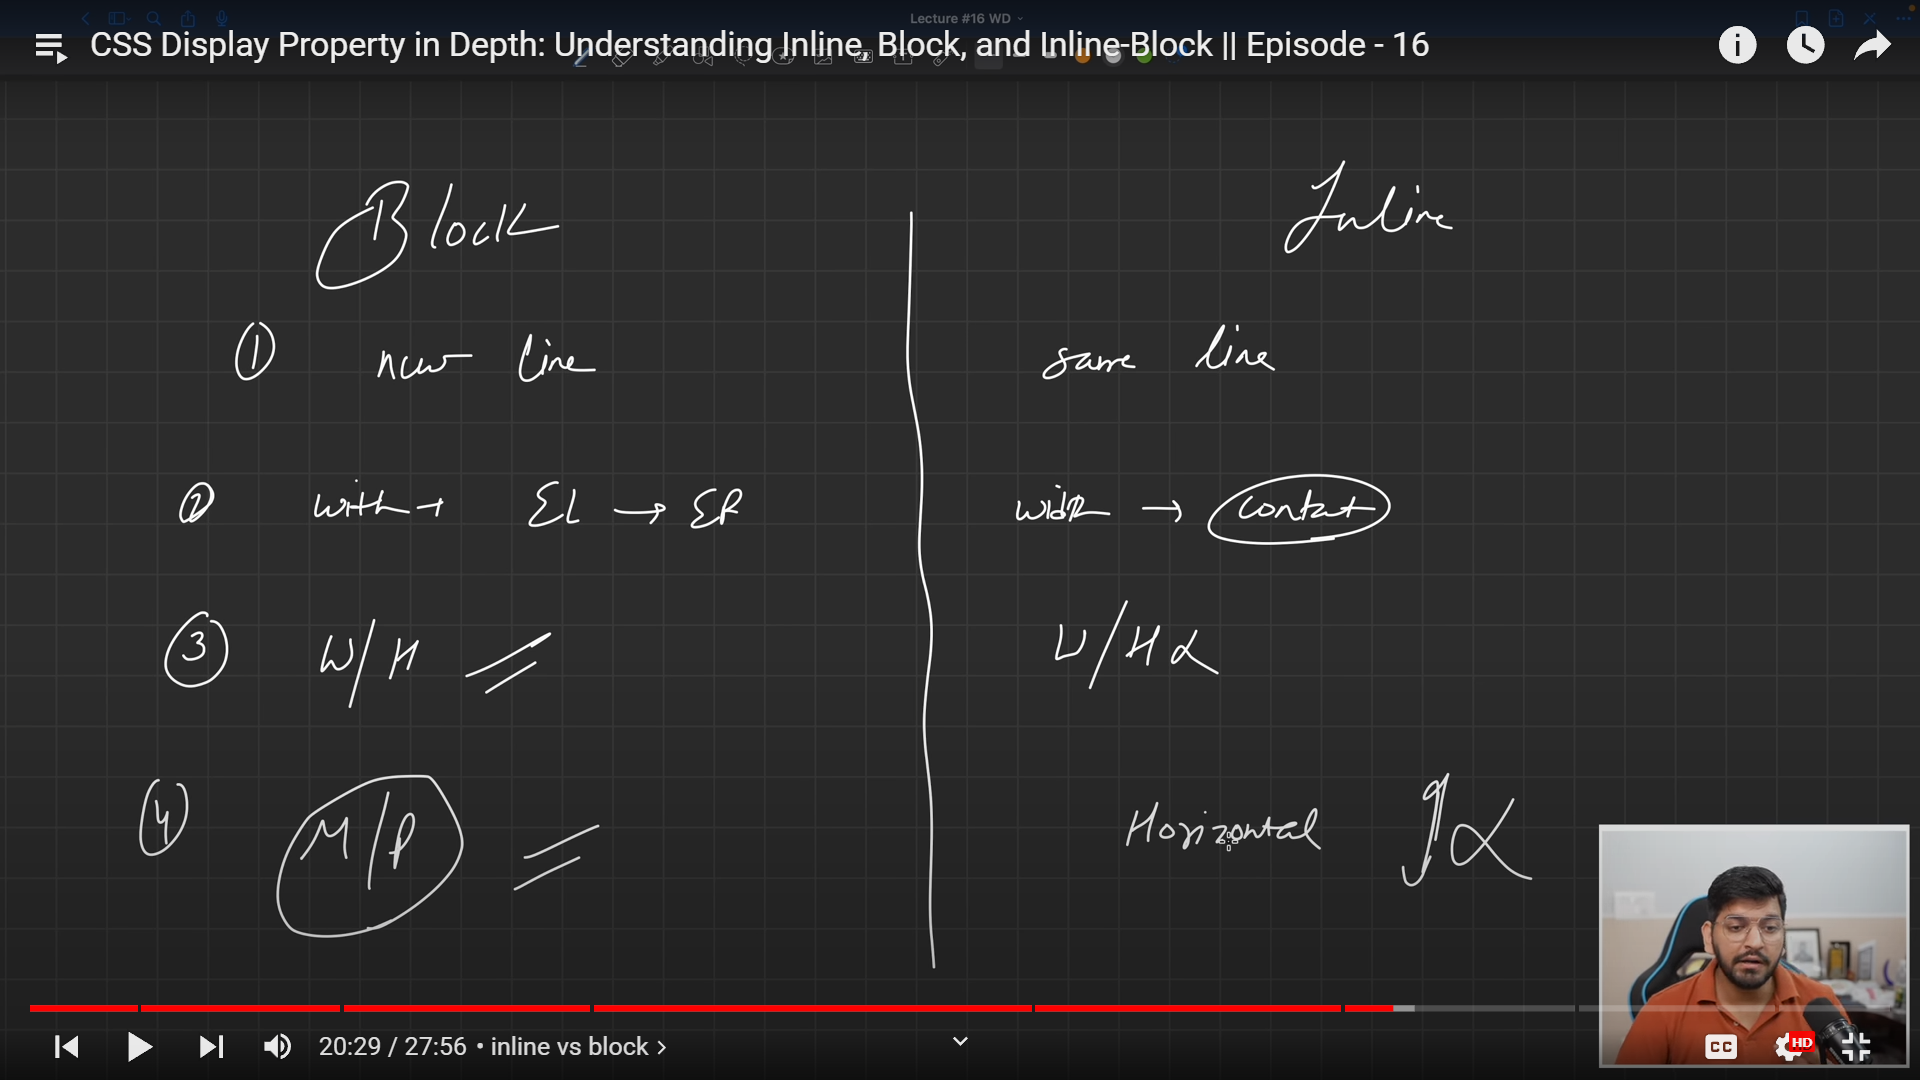 Lecture #16 WD
CSS Display Property in Depth: Understanding Inline, Block, and Inline-Block || Episode - 16
Block
Inline
① new line
same line
② with → EL → ER
width → content
③ W/H
W/H
④ M/P
Horizontal
20:29 / 27:56 • inline vs block >
CC
HD